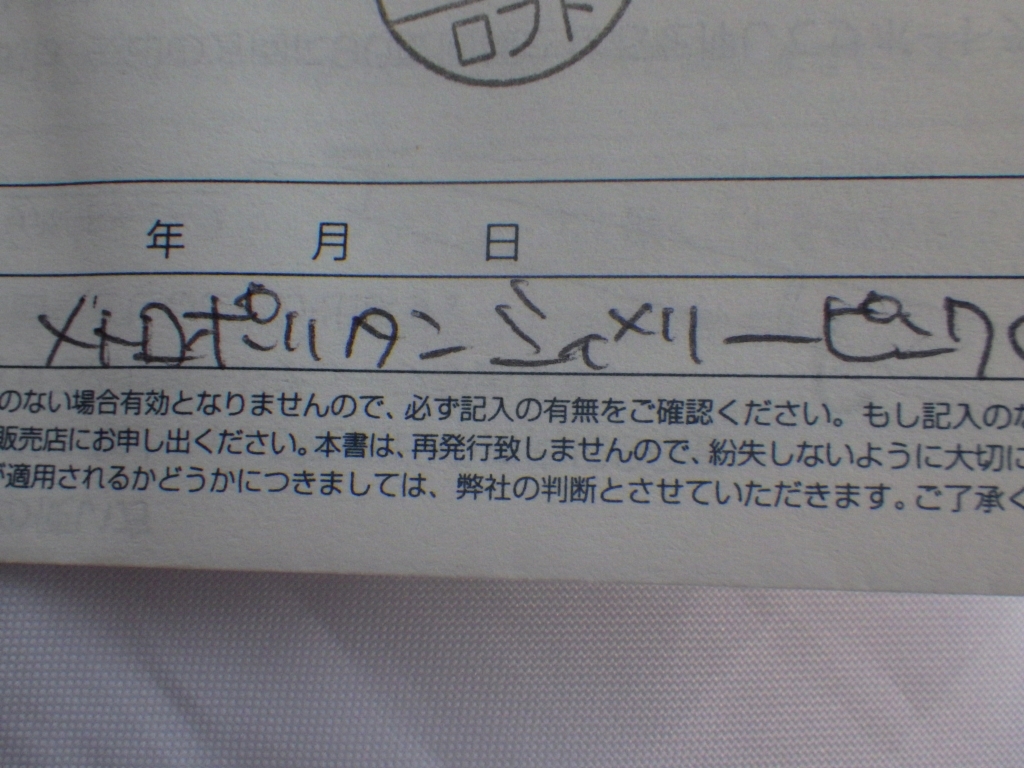 ロフト
年 月 日
メトロポリタン
のない場合有効となりませんので、必ず記入の有無をご確認ください。もし記入のな
販売店にお申し出ください。本書は、再発行致しませんので、紛失しないように大切に
が適用されるかどうかにつきましては、弊社の判断とさせていただきます。ご了承く